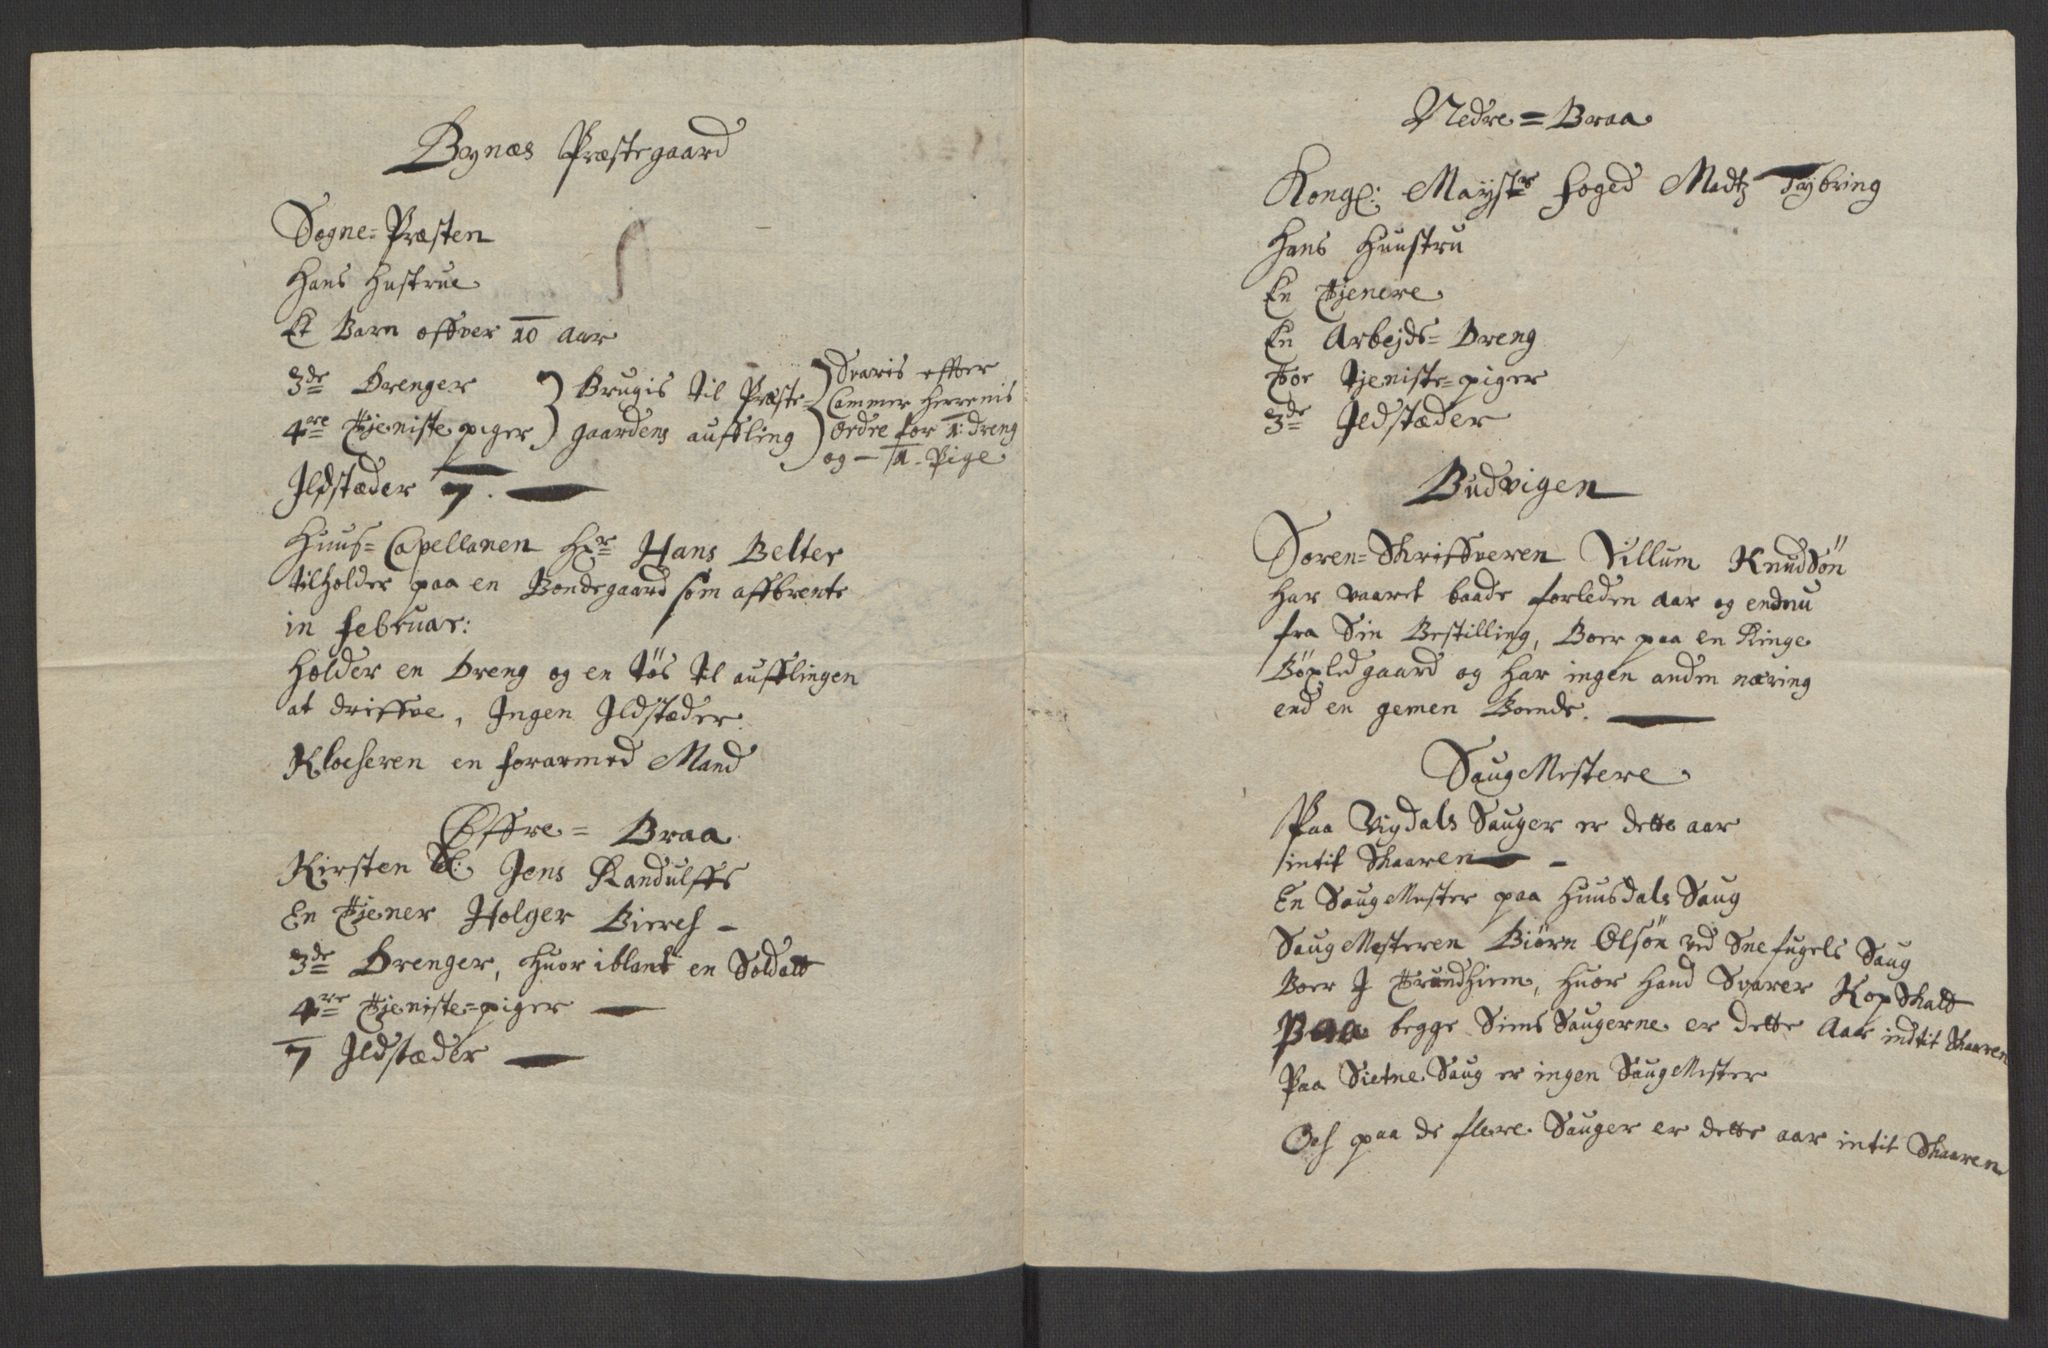 Bynæs Præstegaard
Sogne=Præsten
Hans Hustrue
Et Barn offver 10 Aar
3de Drenger
4re Tjeniste piger
Brugis til Præste-
gaardens auffling
Svaris effter
Cammer Herrenis
Ordre for 1: dreng
og — 1. Pige
Ildstæder 7.
Huus=Capellanen Hr Hans Belter
tilholder paa en Bondegaard som affbrente
in Februar:
Holder en Dreng og en tøs til aufflingen
at driffve, Ingen Ildstæder
Klocheren en forarmed Mand
Øffre=Braa
Kirsten Sl: Jens Randulffs
En Tjener Holger Bierch -
3de Drenger, Huor iblant en Soldatt
4re Tjeniste=piger —
7 Ildstæder —
Nedre=Braa
Kongl: Mayst:s foged Madtz Tybring
Hans Huustru
En Tjenere
En Arbejds=Dreng
Toe tjeniste=piger
3de Ildstæder
Budvigen
Soren=Skriffveren Villum Knudsön
Har vaaret baade forleden aar og endnu
fra Sin Bestilling, Boer paa en Ringe
Böxled gaard og Har ingen anden næring
end en gemen Bonde.
SaugMestere
Paa Vigdals Sauger er dette aar
intit Skaaren —
En SaugMester paa Huusdals Saug
SaugMesteren Biörn Olsön ved Snefugels Saug
Boer I Trundhiem, Huor Hand Svarer KopSkatt
Paa begge Sims Saugerne er dette Aar indtit Skaaren
Paa Sietne Saug er ingen SaugMester
Och paa de flere Sauger er dette aar intit Skaaren